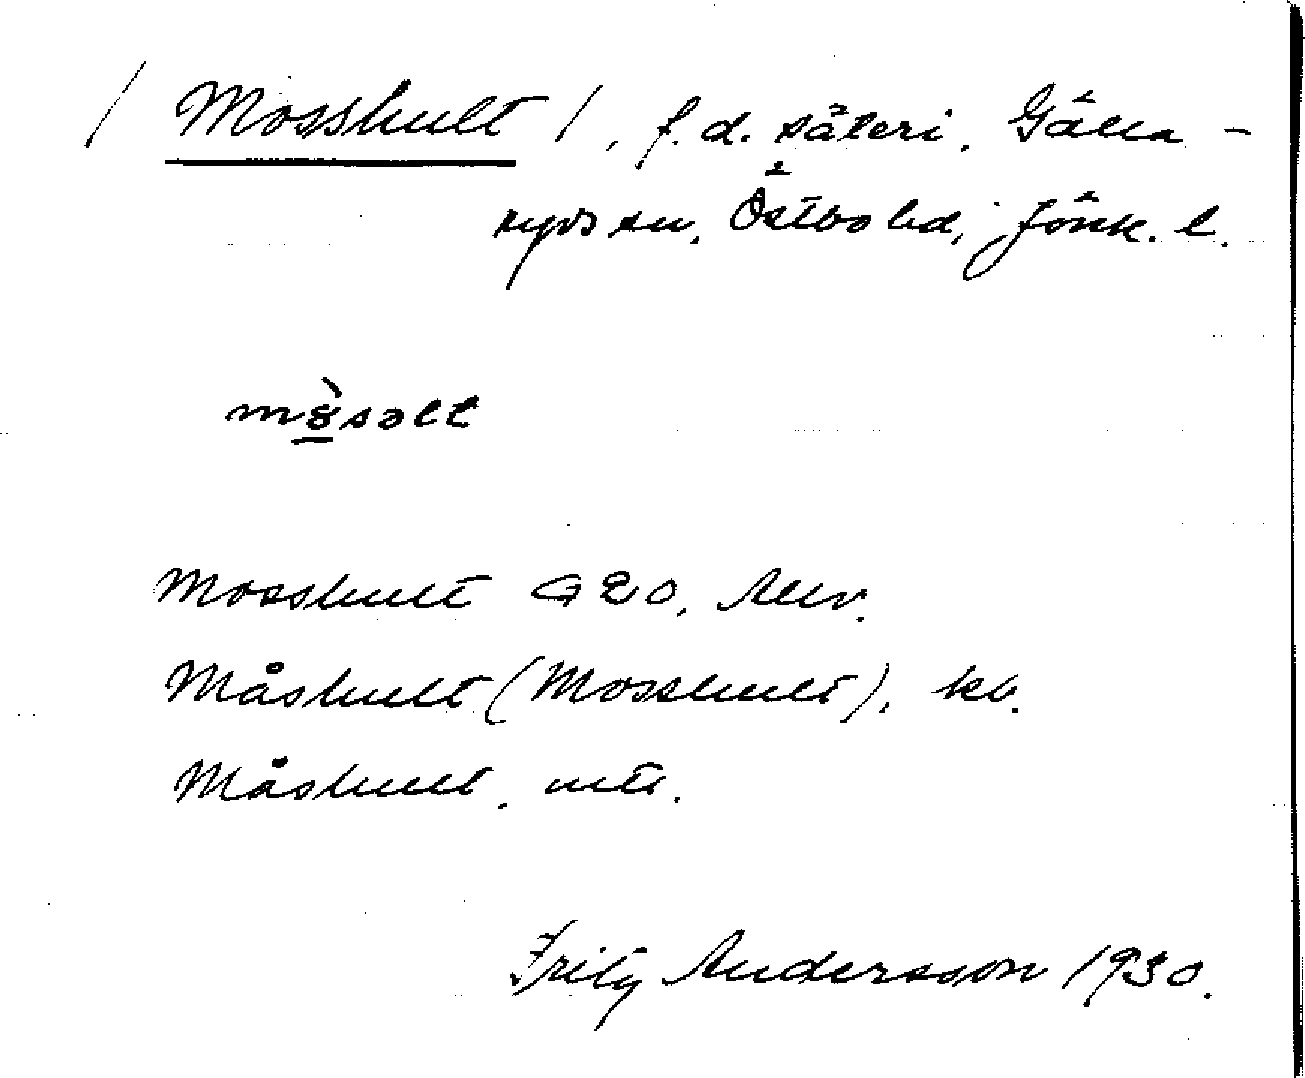 / Mosshult /, f.d. säteri, Gälla-
ryds sn, Östbo hd, Jönk. l.
Mosshult G 20, Allv.
Måshult (Mosshult), kb.
Måshult, mtl.
Fritz Andersson 1930.